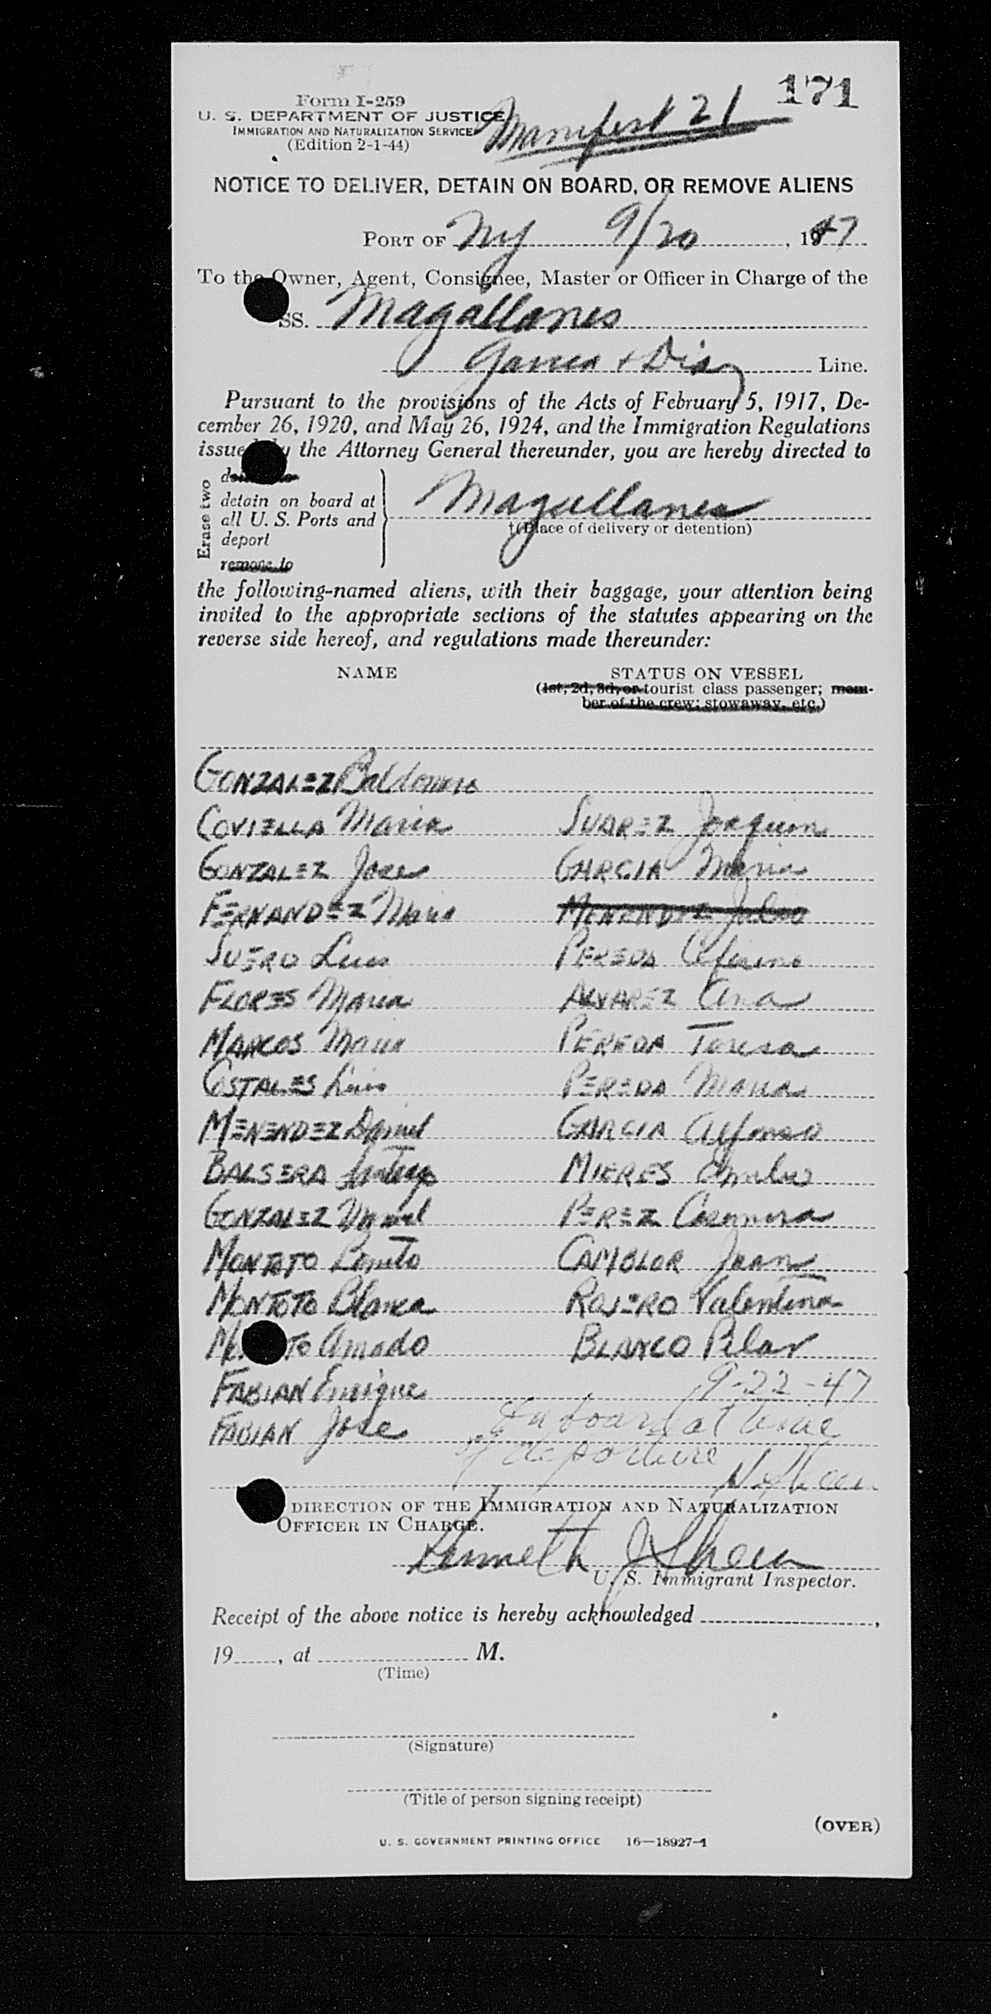 171
Form I-259
U. S. DEPARTMENT OF JUSTICE
IMMIGRATION AND NATURALIZATION SERVICE
(Edition 2-1-44)
Manifest 21
NOTICE TO DELIVER, DETAIN ON BOARD, OR REMOVE ALIENS
PORT OF NY 9/20, 1947
To the Owner, Agent, Consignee, Master or Officer in Charge of the
SS. Magallanes
Garcia + Diaz Line.
Pursuant to the provisions of the Acts of February 5, 1917, De-
cember 26, 1920, and May 26, 1924, and the Immigration Regulations
issued by the Attorney General thereunder, you are hereby directed to
Erase two
detain on board at
all U. S. Ports and
deport
remove to
Magallanes
†(Place of delivery or detention)
the following-named aliens, with their baggage, your attention being
invited to the appropriate sections of the statutes appearing on the
reverse side hereof, and regulations made thereunder:
NAME STATUS ON VESSEL
(1st, 2d, 3d, or tourist class passenger; mem-
ber of the crew; stowaway, etc.)
GONZALEZ Baldomero
COVIELLA Maria SUAREZ Joaquin
GONZALEZ Jose GARCIA Maria
FERNANDEZ Maria MENENDEZ Julio
SUERO Luis PEREDA
FLORES Maria ALVAREZ Ana
MARCOS Maria PEREDA Teresa
COSTALES Luis PEREDA Maria
MENENDEZ Daniel GARCIA Alfonso
BALSERA MIERES Emilio
GONZALEZ Manuel PEREZ Casimira
MONTOTO Benito CAMBLOR Juan
MONTOTO Blanca ROJERO Valentina
MONTOTO Amado BLANCO Pilar
FABIAN Enrique 9-22-47
FABIAN Jose On board at time
of departure
DIRECTION OF THE IMMIGRATION AND NATURALIZATION
OFFICER IN CHARGE.
Kenneth J Shea
U. S. Immigrant Inspector.
Receipt of the above notice is hereby acknowledged ,
19 , at M.
(Time)
(Signature)
(Title of person signing receipt)
(OVER)
U. S. GOVERNMENT PRINTING OFFICE 16—18927-1